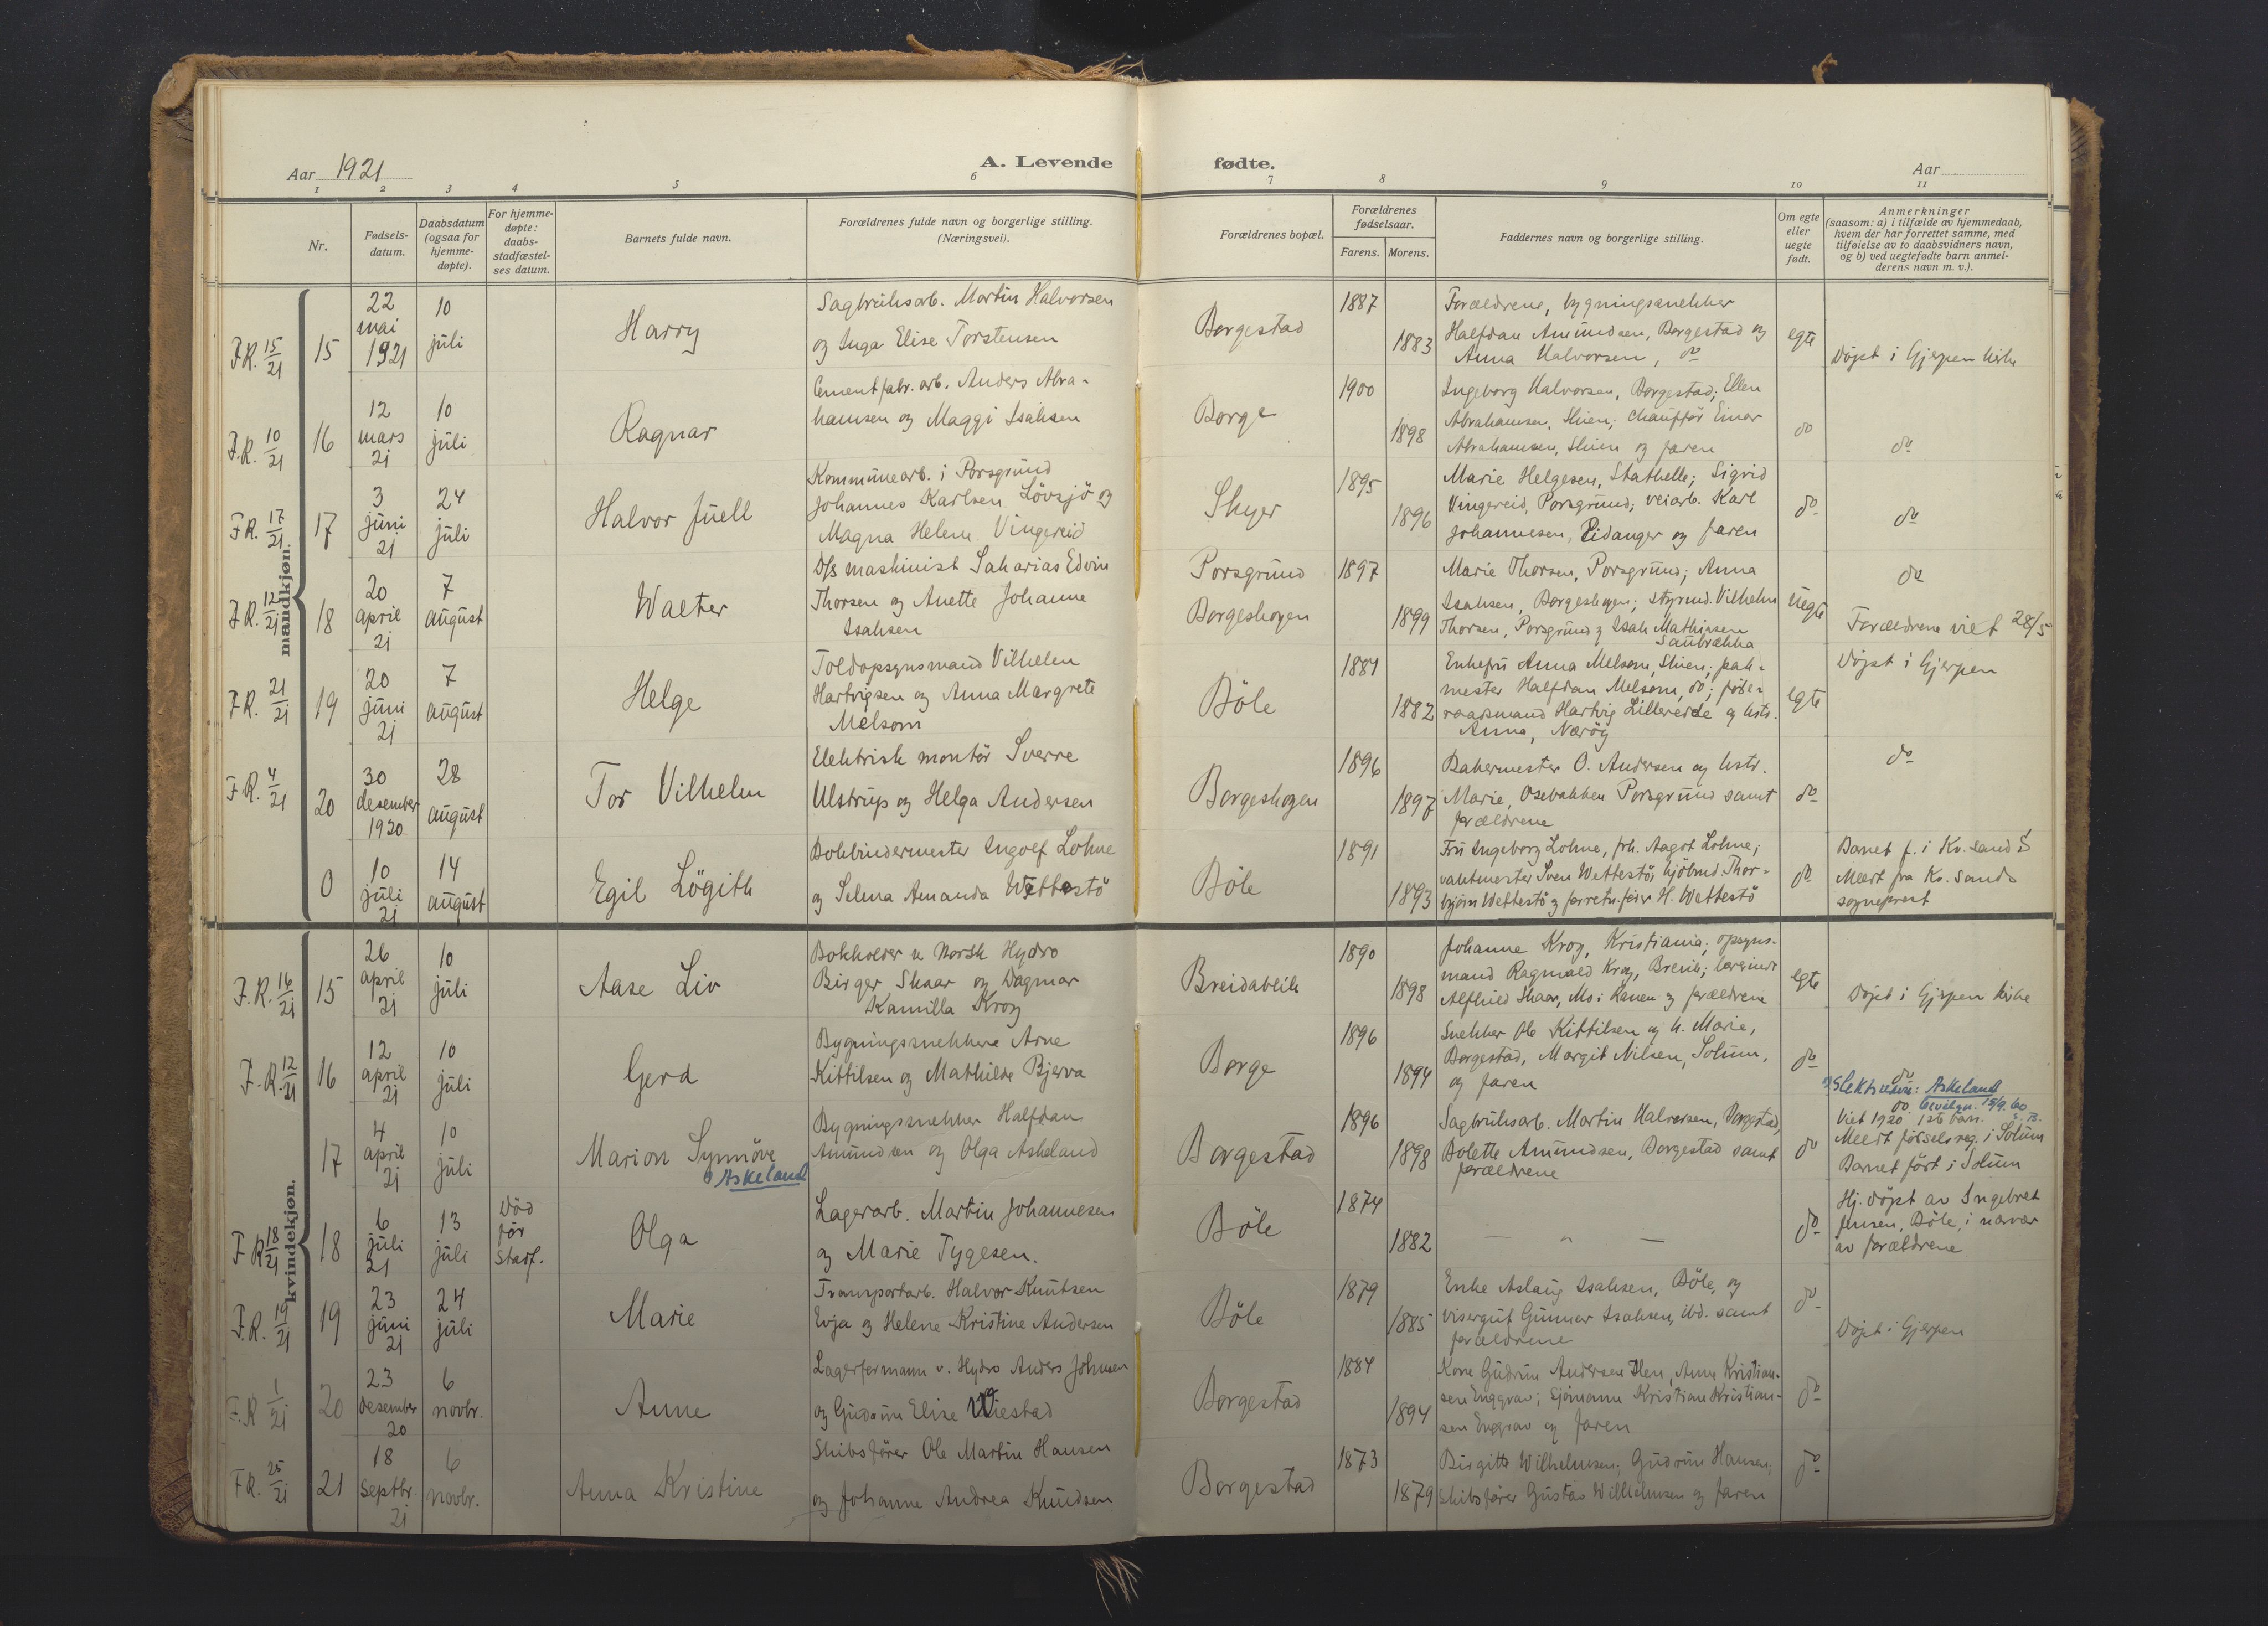 Aar 1921
A. Levende fødte.
Aar
1 2 3 4 5 6 7 8 9 10 11
Nr.
Fødsels-
datum.
Daabsdatum
(ogsaa for
hjemme-
døpte).
For hjemme-
døpte:
daabs-
stadfæstel-
ses datum.
Barnets fulde navn.
Forældrenes fulde navn og borgerlige stilling.
(Næringsvei).
Forældrenes bopæl.
Forældrenes
fødselsaar.
Farens. Morens.
Faddernes navn og borgerlige stilling.
Om egte
eller
uegte
født.
Anmerkninger
(saasom: a) i tilfælde av hjemmedaab,
hvem der har forrettet samme, med
tilføielse av to daabsvidners navn,
og b) ved uegtefødte barn anmel-
derens navn m. v.).
mandkjøn.
F.R. 15/21
15
22
mai
1921
10
juli
Harry
Sagbruksarb. Martin Halvorsen
og Inga Elise Torstensen
Borgestad
1887
1883
Forældrene, bygningssnekker
Halfdan Amundsen, Borgestad og
Anna Halvorsen, do
egte
Döpt i Gjerpen kirke
F.R. 10/21
16
12
mars
21
10
juli
Ragnar
Cementfabr. arb. Anders Abra-
hamsen og Maggi Isaksen
Borge
1900
1898
Ingeborg Halvorsen, Borgestad; Ellen
Abrahamsen, Skien; chaufför Einar
Abrahamsen, Skien og faren
do
do
F.R. 17/21
17
3
juni
21
24
juli
Halvor Juell
Kommunearb. i Porsgrund
Johannes Karlsen Lövsjö og
Magna Helene Vingereid
Skyer
1895
1896
Marie Helgesen, Stathelle; Sigrid
Vingereid, Porsgrund; veiarb. Karl
Johannesen, Eidanger og faren
do
do
F.R. 12/21
18
20
april
21
7
august
Walter
D/s maskinist Sakarias Edvin
Thorsen og Anette Johanne
Isaksen
Porsgrund
Borgeskogen
1897
1899
Marie Thorsen, Porsgrund; Anna
Isaksen, Borgeskogen; styrmd. Vilhelm
Thorsen, Porsgrund og Isak Mathisen
Saubrækka
uegte
do
Forældrene viet 28/5
F.R. 21/21
19
20
juni
21
7
august
Helge
Toldopsynsmand Vilhelm
Hartvigsen og Anna Margrete
Melsom
Böle
1884
1882
Enkefru Anna Melsom, Skien; pak-
mester Halfdan Melsom, do;
Hartvig Lillereide og hstr.
Anna, Nærög
egte
Döpt i Gjerpen
F.R. 4/21
20
30
desember
1920
28
august
Tor Vilhelm
Elektrisk montör Sverre
Ulstrup og Helga Andersen
Borgeskogen
1896
1897
Bakermester O. Andersen og hstr.
Marie, Osebakken Porsgrund samt
forældrene
do
do
0
10
juli
21
14
august
Egil Lögith
Bokbindermester Ingolf Lohne
og Selma Amanda Wettestö
Böle
1891
1893
Fru Ingeborg Lohne, frk. Aagot Lohne;
vaktmester Sven Wettestö, kjöbmd. Thor-
björn Wettestö og H. Wettestö
do
Barnet f. i Kr. sand S
Meldt fra Kr. sands
sogneprest
kvindekjøn.
F.R. 16/21
15
26
april
21
10
juli
Aase Liv
Bokholder v. Norsk Hydro
Birger Skaar og Dagmar
Kamilla Krog
Breidablik
1890
1898
Johanne Krog, Kristiania; opsyns-
mand Ragnvald Krog, Brevik; lærerinde
Alfhild Skaar, Mo i Ranen og forældrene
egte
Döpt i Gjerpen kirke
F.R. 12/21
16
12
april
21
10
juli
Gerd
Bygningssnekkere Arne
Kittilsen og Mathilde Bjerva
Borge
1896
1894
Snekker Ole Kittilsen og h. Marie,
Borgestad, Margit Nilsen, Solum,
og faren
do
do
17
4
april
21
10
juli
Marion Synnöve
Askeland
Bygningssnekker Halfdan
Amundsen og Olga Askeland
Borgestad
1896
1898
Sagbruksarb. Martin Halvorsen, Borgestad,
Bolette Amundsen, Borgestad samt
forældrene
do
Slektsnavn: Askeland
do. bevilgn. 15/9. 60
Viet 1920 1ste barn.
Meldt födselsreg. i Solum
Barnet fört i Solum
F.R. 18/21
18
6
juli
21
13
juli
Död
för
stadf.
Olga
Lagerarb. Martin Johannesen
og Marie Tygesen.
Böle
1874
1882
— " —
do
Hj. döpt av Ingebret
Jensen, Böle, i nærvær
av forældrene
F.R. 19/21
19
23
juni
21
24
juli
Marie
Transportarb. Halvor Knutsen
Evja og Helene Kristine Andersen
Böle
1879
1885
Enke Aslaug Isaksen, Böle, og
visergut Gunnar Isaksen, ibd. samt
forældrene
do
Döpt i Gjerpen
F.R. 1/21
20
23
desember
20
6
novbr.
Anne
Lagerformann v. Hydro Anders Johnsen
og Gudrun Elise Wiestad
Borgestad
1884
1894
Kone Gudrun Andersen Ilen, Anna Kristian-
sen Enggrav; sjömann Kristian Kristian-
sen Enggrav og faren
do
F.R. 25/21
21
18
septbr.
21
6
novbr.
Anna Kristine
Skibsförer Ole Martin Hansen
og Johanne Andrea Knudsen
Borgestad
1873
1879
Birgitte Wilhelmsen; Gudrun Hansen;
skibsförer Gustav Willhelmsen og faren
do